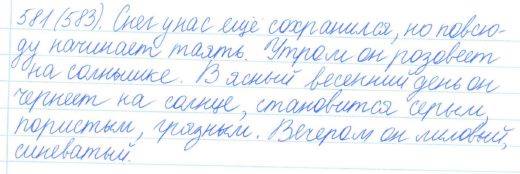 581(583). Снег у нас ещё сохранился, но повсю-
ду начинает таять. Утром он розовеет
на солнышке. В ясный весенний день он
чернеет на солнце, становится серым,
пористым, грязным. Вечером он лиловый,
синеватый.